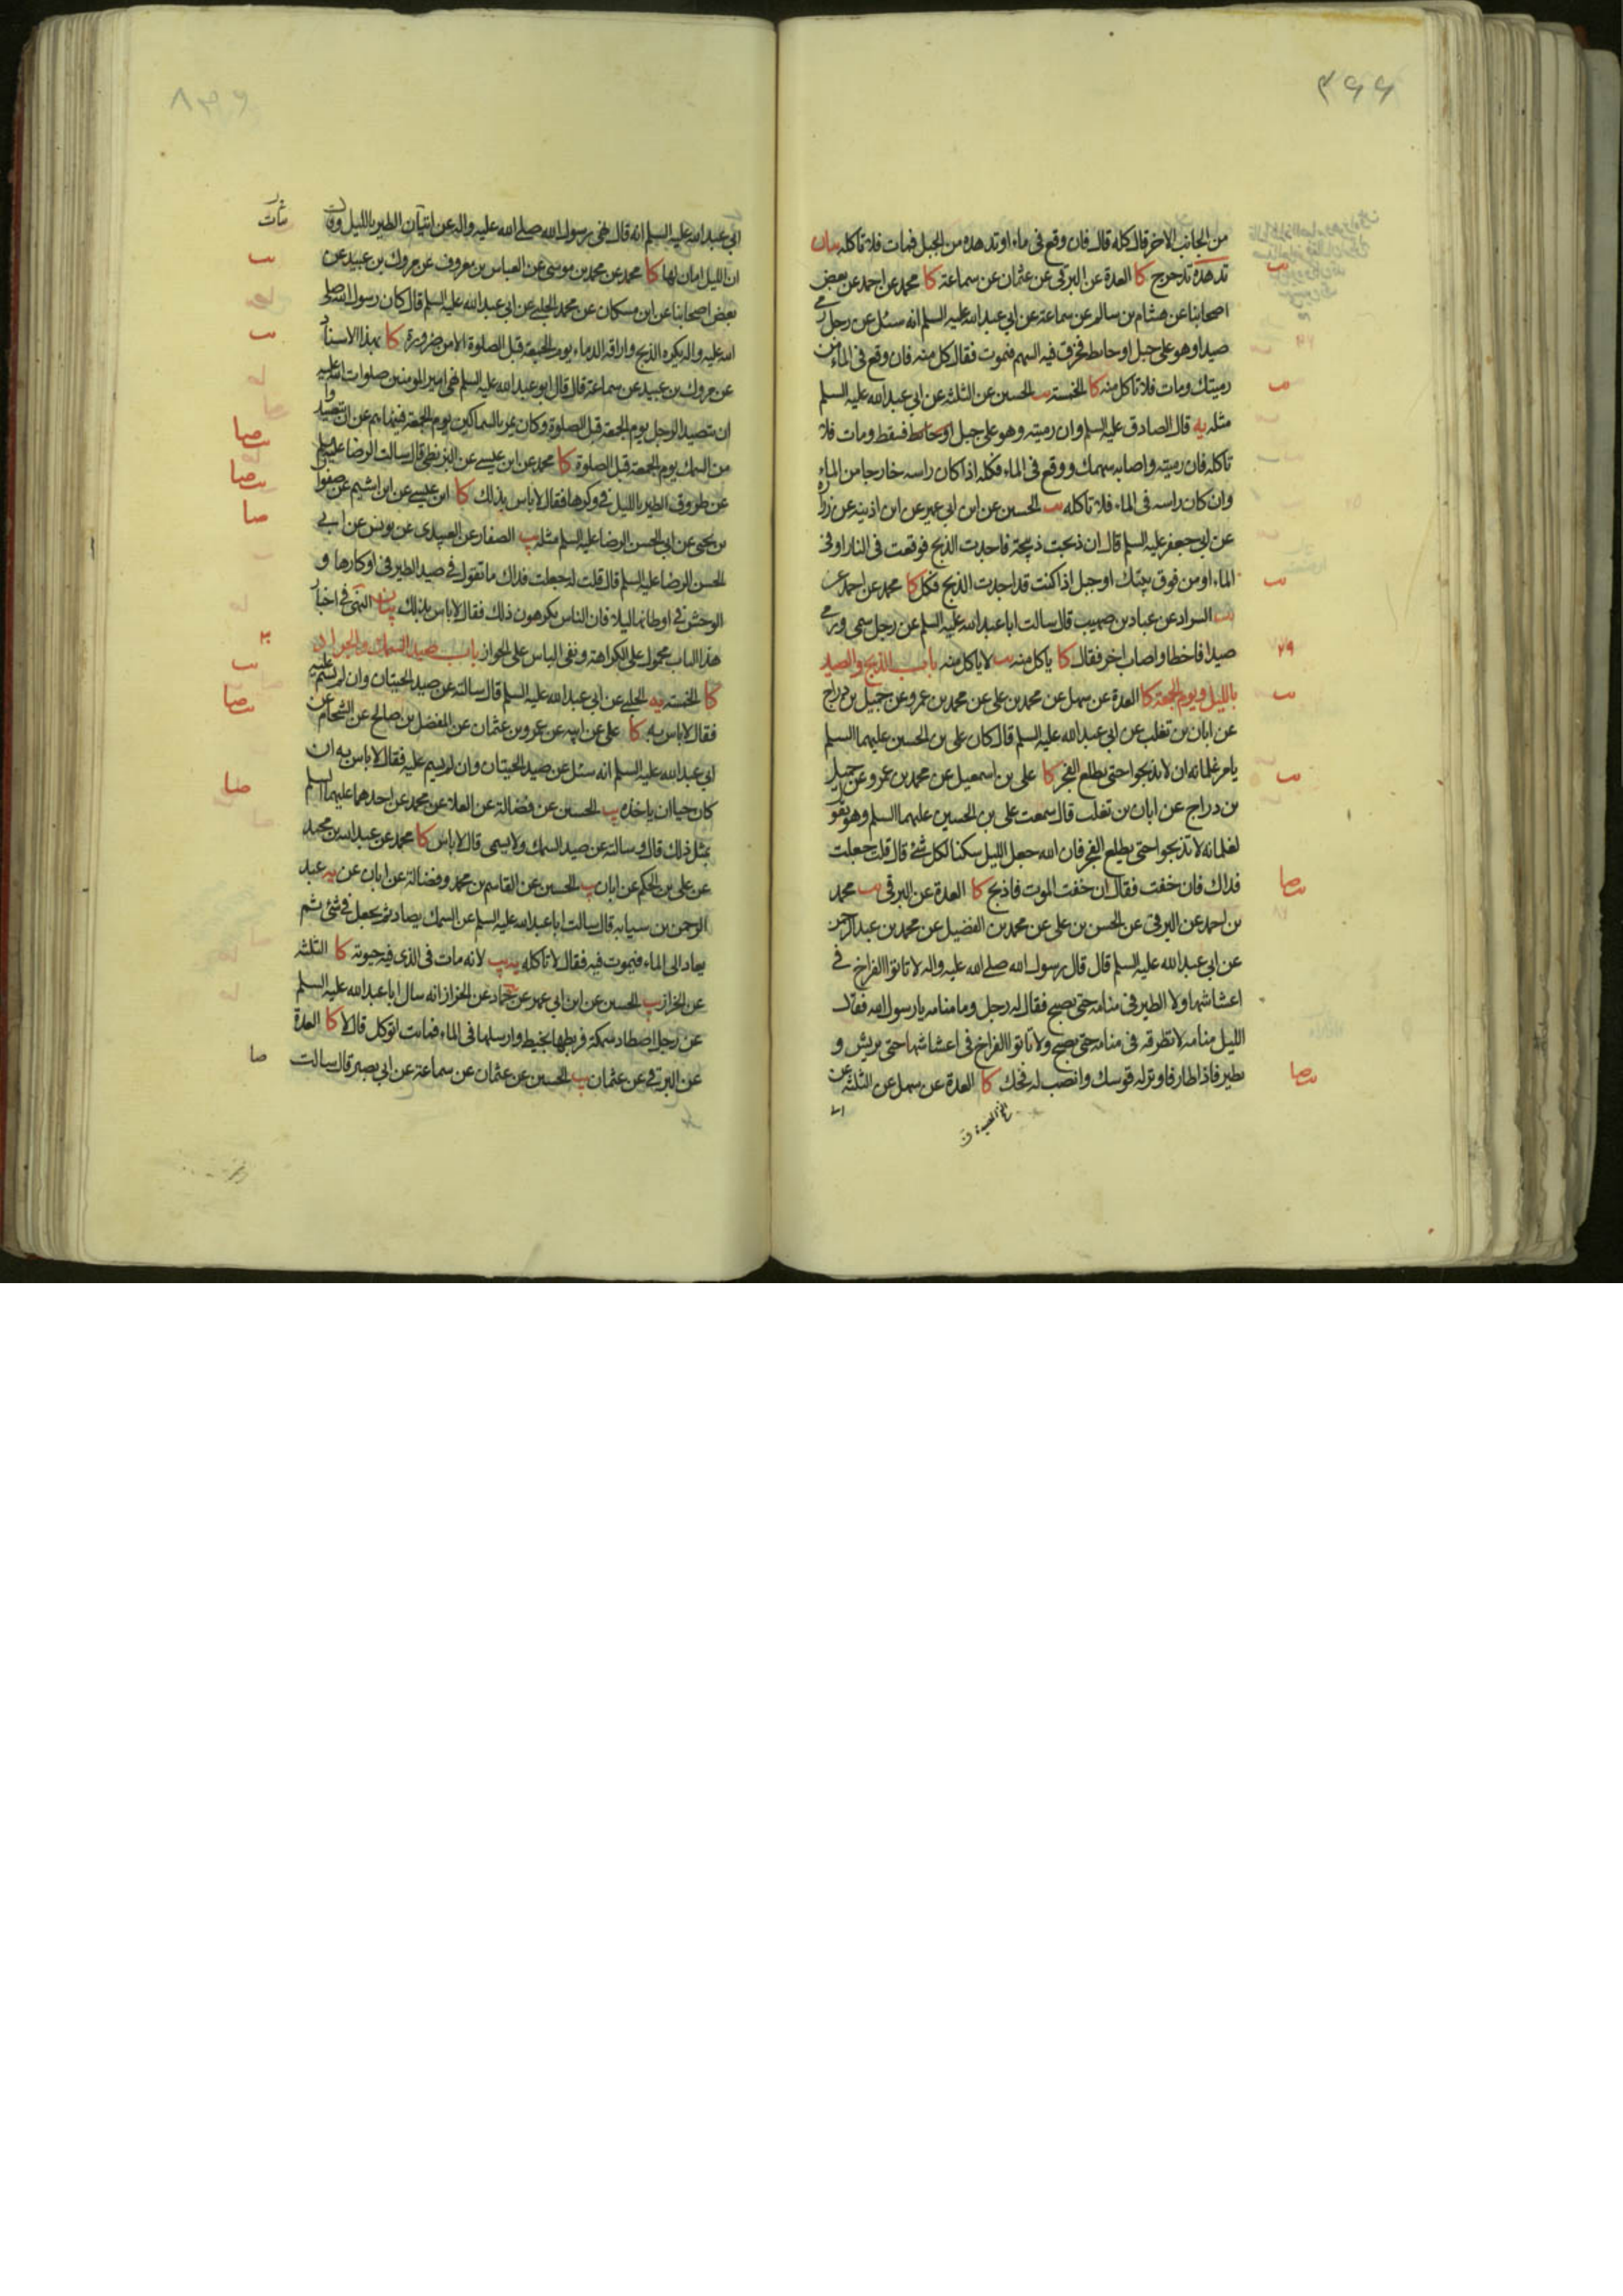 ٣٩٩
من الجانب الاخر قال كله قال فان وقع فى ماء او تدهده من الجبل فمات فلا تاكله بيان
تدهده تدحرج كا العدة عن البرقى عن عثمان عن سماعة كا محمد عن احمد عن بعض
اصحابنا عن هشام بن سالم عن سماعة عن ابى عبد الله عليه السلم انه سئل عن رجل رمى
صيدا وهو على جبل او حايط فخرق فيه السهم فيموت فقال كل منه فان وقع فى الماء من
رميتك ومات فلا تاكل منه كا الخمسة يب الحسين عن الثلثة عن ابى عبد الله عليه السلم
مثله يه قال الصادق عليه السلم وان رميته وهو على جبل او حايط فسقط ومات فلا
تاكله فان رميته واصابه سهمك ووقع فى الماء فكله اذا كان راسه خارجا من الماء
وان كان راسه فى الماء فلا تاكله يب الحسين عن ابن ابى عمير عن ابن اذينة عن زرارة
عن ابى جعفر عليه السلم قال ان ذبحت ذبيحة فاجدت الذبح فوقعت فى النار او فى
الماء او من فوق بيتك او جبل اذا كنت قد اجدت الذبح فكل كا محمد عن احمد عن
يب السراد عن عباد بن صهيب قال سالت ابا عبد الله عليه السلم عن رجل سمى ورمى
صيدا فاخطا واصاب اخر فقال كا ياكل منه يب لا ياكل منه باب الذبح والصيد
بالليل ويوم الجمعة كا العدة عن سهل عن محمد بن على عن محمد بن عمرو عن جميل بن دراج
عن ابان بن تغلب عن ابى عبد الله عليه السلم قال كان على بن الحسين عليهما السلم
يامر غلمانه ان لا يذبحوا حتى يطلع الفجر كا على بن اسمعيل عن محمد بن عمرو عن جميل
بن دراج عن ابان بن تغلب قال سمعت على بن الحسين عليهما السلم وهو يقول
لغلمانه لا تذبحوا حتى يطلع الفجر فان الله جعل الليل سكنا لكل شئ قال قلت جعلت
فداك فان خفت فقال ان خفت الموت فاذبح كا العدة عن البرقى يب محمد
بن احمد عن البرقى عن الحسن بن على عن محمد بن الفضيل عن محمد بن عبد الرحمن
عن ابى عبد الله عليه السلم قال قال رسول الله صلى الله عليه واله لا تاتوا الفراخ فى
اعشاشها ولا الطير فى منامه حتى يصبح فقال له رجل وما منامه يا رسول الله فقال
الليل منامه لا تطرقه فى منامه حتى يصبح ولا تاتوا الفراخ فى اعشاشها حتى يريش و
يطير فاذا طار فاوتر له قوسك وانصب له فخك كا العدة عن سهل عن الثلثة عن
ابى عبد الله عليه السلم انه قال نهى رسول الله صلى الله عليه واله عن اتيان الطير بالليل وقال
ان الليل امان لها كا محمد عن محمد بن موسى عن العباس بن معروف عن مروك بن عبيد عن
بعض اصحابنا عن ابن مسكان عن محمد الحلبى عن ابى عبد الله عليه السلم قال كان رسول الله صلى
الله عليه واله يكره الذبح واراقة الدماء يوم الجمعة قبل الصلوة الا من ضرورة كا بهذا الاسناد
عن مروك بن عبيد عن سماعة قال قال ابو عبد الله عليه السلم نهى امير المومنين صلوات الله عليه
ان يتصيد الرجل يوم الجمعة قبل الصلوة وكان يمر بالسماكين يوم الجمعة فينهاهم عن ان يتصيدوا
من السمك يوم الجمعة قبل الصلوة كا محمد عن ابن عيسى عن البزنطى قال سالت الرضا عليه السلم
عن طروق الطير بالليل فى وكرها فقال لا باس بذلك كا ابن عيسى عن ابن اشيم عن صفوان
بن يحيى عن ابى الحسن الرضا عليه السلم مثله يب الصفار عن العبيدى عن يونس عن ابى
الحسن الرضا عليه السلم قال قلت له جعلت فداك ما تقول فى صيد الطير فى اوكارها و
الوحش فى اوطانها ليلا فان الناس يكرهون ذلك فقال لا باس بذلك بيان النهى فى اخبار
هذا الباب محمول على الكراهة ونفى الباس على الجواز باب صيد السمك والجراد
كا الخمسة يه الحلبى عن ابى عبد الله عليه السلم قال سالته عن صيد الحيتان وان لم يسم عليه
فقال لا باس به كا على عن ابيه عن عمرو بن عثمان عن المفضل بن صالح عن الشحام عن
ابى عبد الله عليه السلم انه سئل عن صيد الحيتان وان لم يسم عليه فقال لا باس به ان
كان حيا ان ياخذه يب الحسين عن فضالة عن العلا عن محمد عن احدهما عليهما السلم
بمثل ذلك قال وسالته عن صيد السمك ولا يسمى قال لا باس كا محمد عن عبد الله بن محمد
عن على بن الحكم عن ابان يب الحسين عن القاسم بن محمد وفضالة عن ابان عن يه عبد
الرحمن بن سيابه قال سالت ابا عبد الله عليه السلم عن السمك يصاد ثم يجعل فى شئ ثم
يعاد الى الماء فيموت فيه فقال لا تاكله يه يب لانه مات فى الذى فيه حيوته كا الثلثة
عن الخزاز يب الحسين عن ابن ابى عمير عن حماد عن الخزاز انه سال ابا عبد الله عليه السلم
عن رجل اصطاد سمكة فربطها بخيط وارسلها فى الماء فماتت اتوكل قال لا كا العدة
عن البرقى عن عثمان يب الحسين عن عثمان عن سماعة عن ابى بصير قال سالت